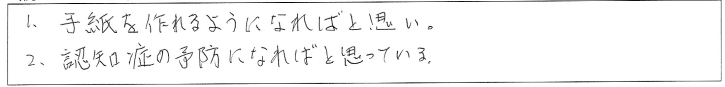 1. 手紙を作れるようになればと思い。
2、認知症の予防になればと思っている。